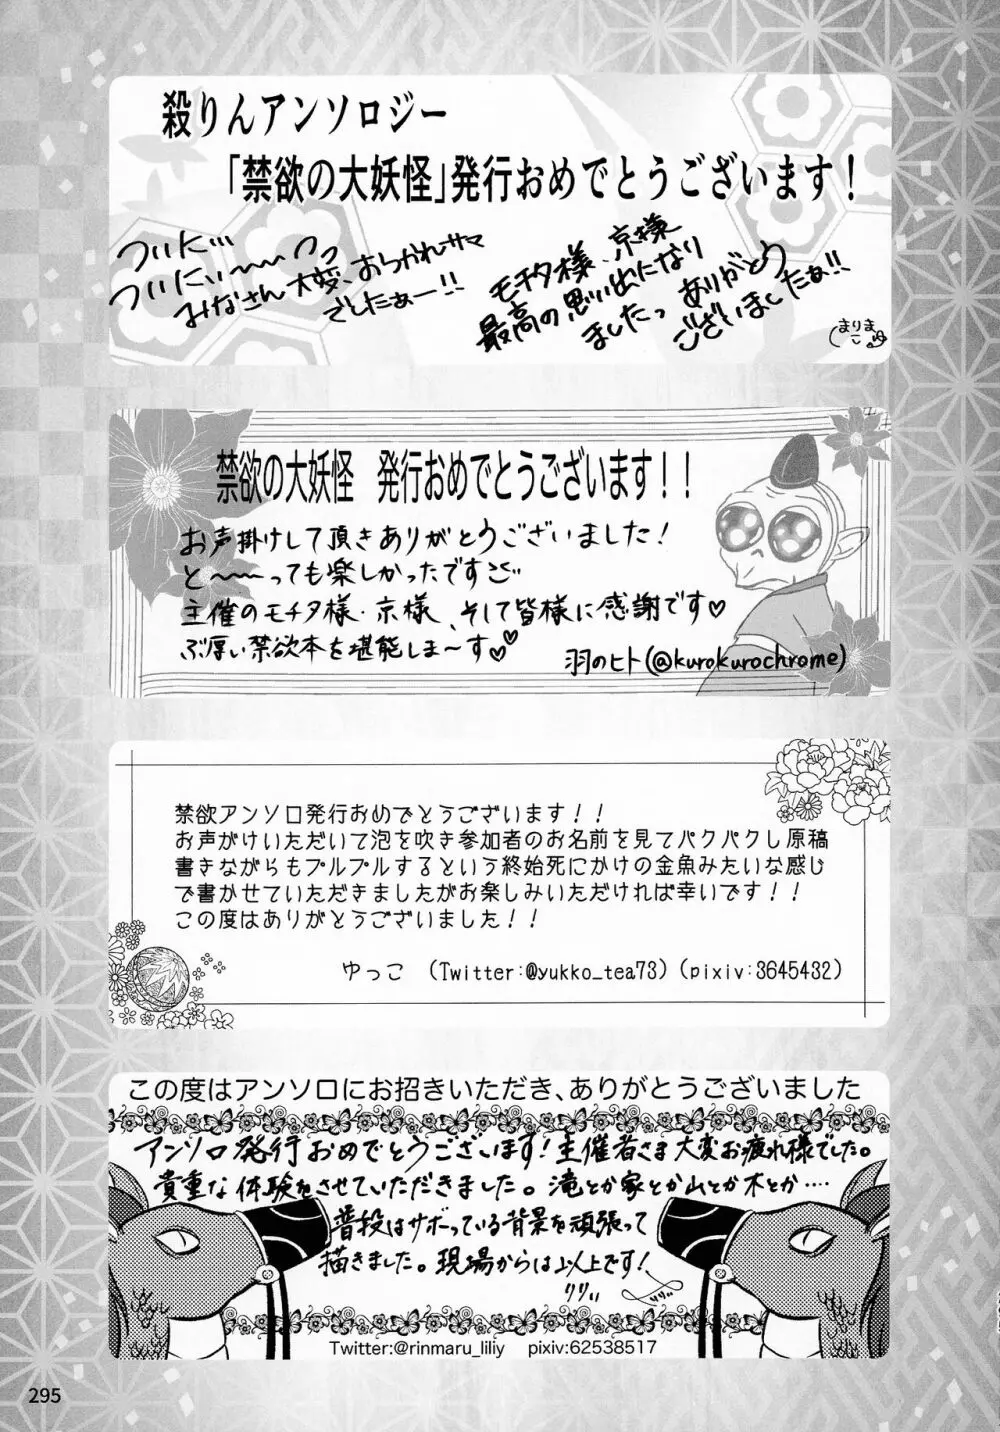 殺りんアンソロジー
「禁欲の大妖怪」発行おめでとうございます！
ついに…
ついにぃ〜〜っっ
みなさん大変、おつかれサマ
でしたぁー!!
モチタ様、京様
最高の思い出になり
ましたっ ありがとう
ございましたぁ!!
まりま
禁欲の大妖怪 発行おめでとうございます！！
お声掛けして頂きありがとうございました！
と〜〜〜っても楽しかったです
主催のモチタ様・京様、そして皆様に感謝です♡
ぶ厚い禁欲本を堪能しま〜す♡♡
羽のヒト(@kurokurochrome)
禁欲アンソロ発行おめでとうございます！！
お声がけいただいて泡を吹き参加者のお名前を見てパクパクし原稿
書きながらもプルプルするという終始死にかけの金魚みたいな感じ
で書かせていただきましたがお楽しみいただければ幸いです！！
この度はありがとうございました！！
ゆっこ (Twitter:@yukko_tea73)(pixiv:3645432)
この度はアンソロにお招きいただき、ありがとうございました
アンソロ発行おめでとうございます！主催者さま大変お疲れ様でした。
貴重な体験をさせていただきました。滝とか家とか山とか木とか‥‥
普段はサボっている背景を頑張って
描きました。現場からは以上です！
リリィ
Twitter:@rinmaru_liliy pixiv:62538517
295